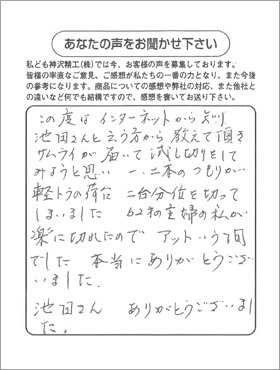 あなたの声をお聞かせ下さい
私ども神沢精工(株)では今、お客様の声を募集しております。
皆様の率直なご意見、ご感想が私たちの一番の力となり、また今後
の参考になります。商品についての感想や弊社の対応、また他社と
の違いなど何でも結構ですので、感想を書いてお送り下さい。
この度は インターネットから知り
池田さんと云う方から 教えて頂き
サムライが届いて 試し切りをして
みようと思い 一、二本のつもりが
軽トラの荷台 二台分位を切って
しまいました 62才の主婦の私が
楽に切れたので アットいう間
でした 本当に ありがとうござ
いました.
池田さん ありがとうございまし
た.